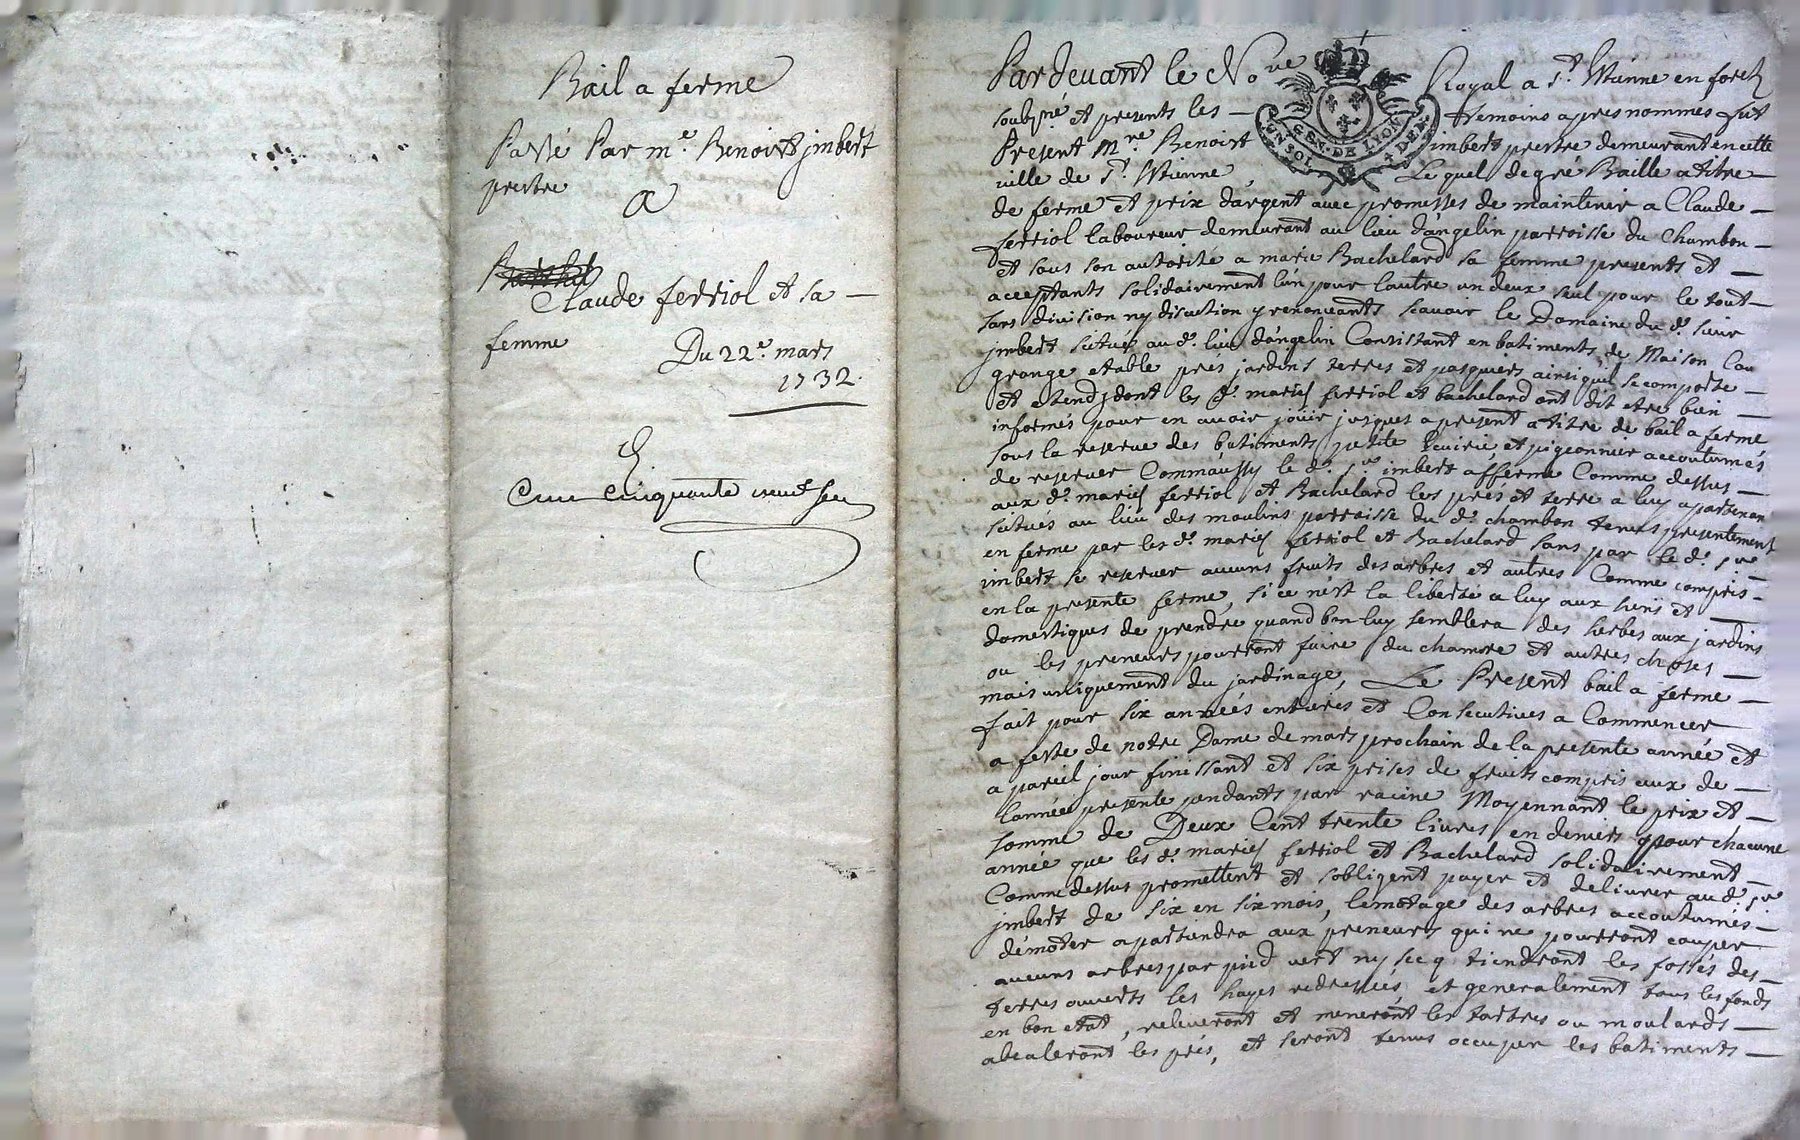 Bail a ferme
Passé Par m.e Benoist jmbert
prestre
A
Claude ferriol et sa
femme
Du 22.e mars
1732.
Cent Cinquante neuf
Pardevant le No.re Royal a S.t Etienne en forest
soubsné et presents les temoins apres nommés fut
Present M.re Benoist imbert prestre demeurant en cette
ville de S.t Etienne Le quel de gré Baille a titre
de ferme et prix d'argent avec promesses de maintenir a Claude
ferriol laboureur demeurant au lieu d'angelin parroisse du Chambon
et sous son autorité a marie Bachelard sa femme presents et
acceptants solidairement l'un pour l'autre un deux seul pour le tout
sans division ny discution y renonceants scavoir le Domaine du d. sieur
jmbert scitué au d. lieu d'angelin Consistant en batiments de Maison
grange etable prés jardins terres et pasquiers ainsi quil se comporte
et etend dont les d. mariés ferriol et bachelard ont dit etre bien
informés pour en avoir joüir jusques a present a titre de bail a ferme
sous la reserve des batiments petite Ecuirie et pigeonnier accoutumés
de reserver Commaussy le d. s.r imbert afferme Comme dessus
aux d. mariés ferriol et Bachelard les prés et terre a luy apartenan
scitués au lieu des moulins parroisse du d. chambon tenus presentement
en ferme par les d. mariés ferriol et Bachelard sans par le d. s.r
imbert se reserver aucuns fruits des arbres et autres Comme compris
en la presente ferme, si ce n'est la liberté a luy aux siens et
domestiques de prendre quand bon luy semblera des herbes aux jardins
ou les preneurs pourront faire du chamvre et autres choses
mais uniquement du jardinage, Le Present bail a ferme
fait pour six années entieres et Consecutives a Commencer
a feste de notre Dame de mars prochain de la presente année et
a pareil jour finissant et six prises de fruits compris ceux de
l'année presente pendants par racine Moyennant le prix et
somme de Deux Cent trente livres en deniers pour chacune
année que les d. mariés ferriol et Bachelard solidairement
Comme dessus promettent et sobligent payer et delivrer au d. s.r
jmbert de six en six mois, lemotage des arbres accoutumés
démoter apartiendra aux preneurs qui ne pourront couper
aucuns arbres par pied vert ny sec tiendront les fossés des
terres ouverts les hayes redressées et generalement tous les fonds
en bon etat, releveront et meneront les tartres ou moulards
les prés, et seront tenus occuper les batiments
GEN. DE LYON